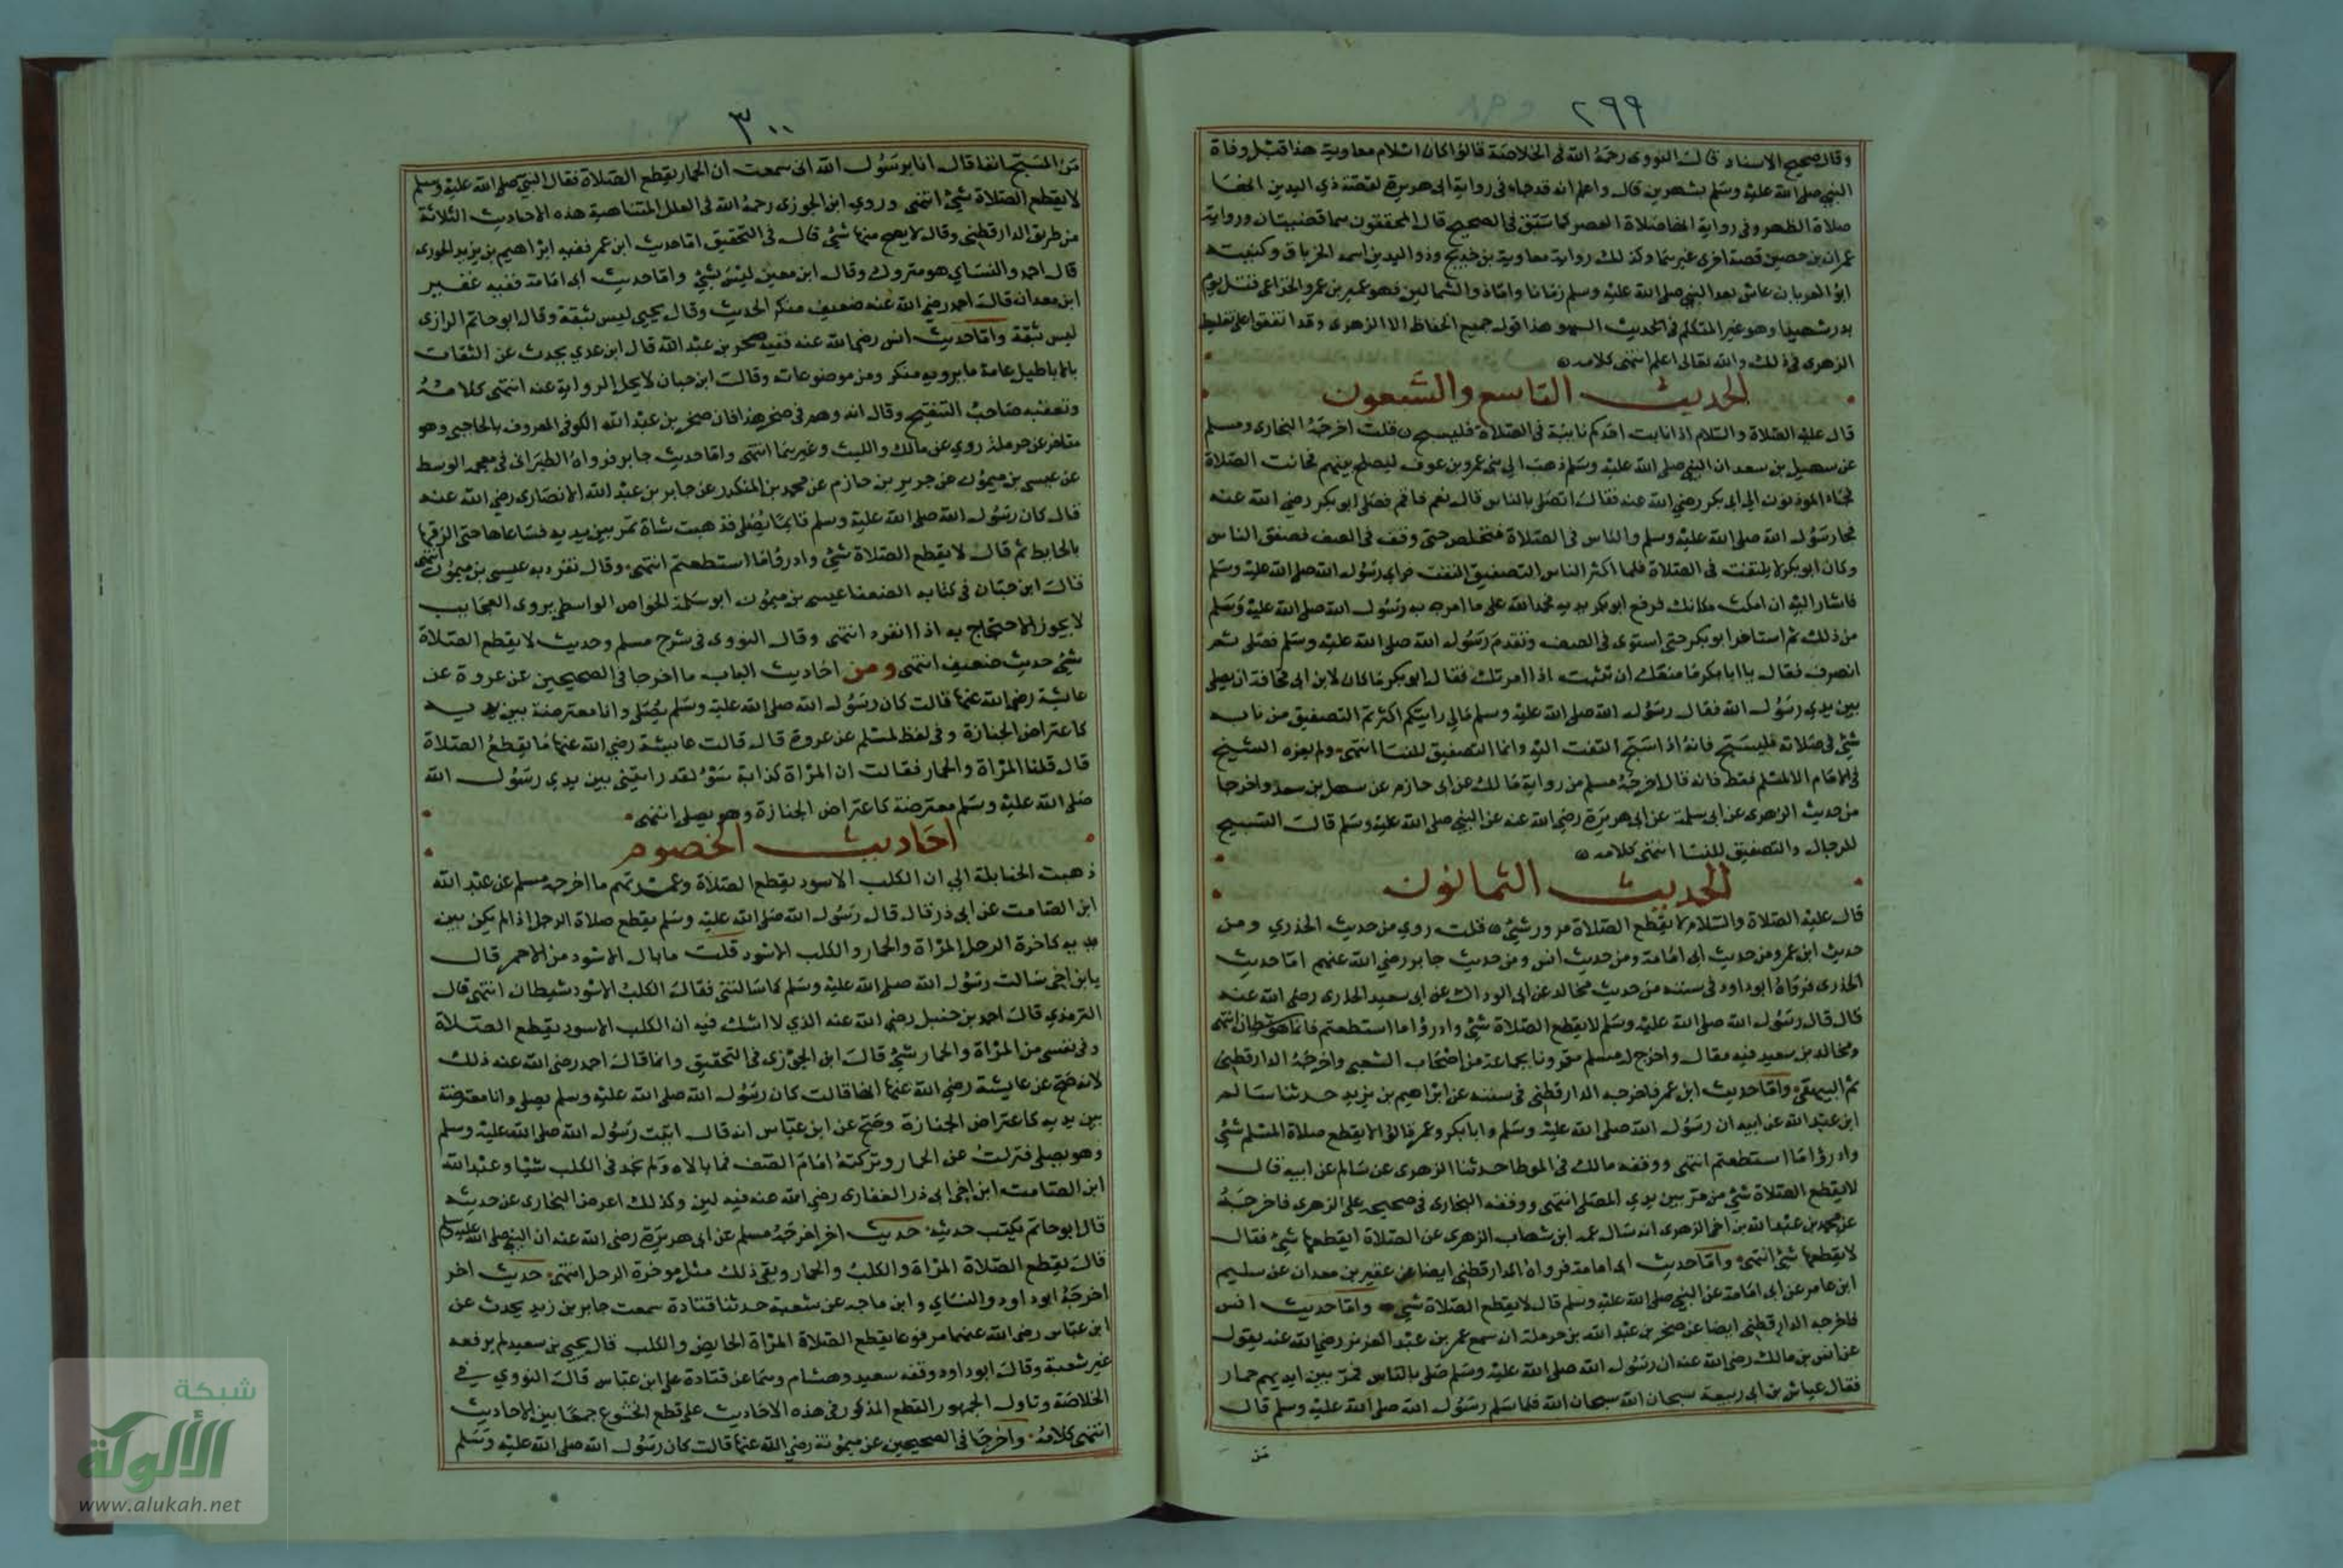 ٢٩٩
وقال صحيح الاسناد قال النووى رحمه الله فى الخلاصة قالوا كان اسلام معاوية هذا قبل وفاة
النبى صلى الله عليه وسلم بشهرين قال واعلم انه قد جاء فى رواية ابى هريرة لقصة ذي اليدين انها
صلاة الظهر وفى رواية انها صلاة العصر كما سبق فى الصحيح قال المحققون هما قضيتان ورواية
عمران بن حصين قصة اخرى غيرهما وكذلك رواية معاوية بن خديج وذو اليدين اسمه الخرباق وكنيته
ابو العريان عاش بعد النبى صلى الله عليه وسلم زمانا واما ذو الشمالين فهو عمير بن عمرو الخزاعى قتل يوم
بدر شهيدا وهو غير المتكلم فى الحديث السهو هذا قول جميع الحفاظ الا الزهرى وقد اتفقوا على تغليط
الزهرى فى ذلك والله تعالى اعلم انتهى كلامه
الحديث التاسع والسبعون
قال عليه الصلاة والسلام اذا نابت احدكم نايبة فى الصلاة فليسبح قلت اخرجه البخارى ومسلم
عن سهيل بن سعد ان النبى صلى الله عليه وسلم ذهب الي بنى عمرو بن عوف ليصلح بينهم فحانت الصلاة
فجاء الموذن الى ابى بكر رضي الله عنه فقال اتصلى بالناس قال نعم فاقم فصلى ابو بكر رضي الله عنه
فجا رسول الله صلى الله عليه وسلم والناس فى الصلاة فتخلص حتى وقف فى الصف فصفق الناس
وكان ابو بكر لا يلتفت فى الصلاة فلما اكثر الناس التصفيق التفت فراى رسول الله صلى الله عليه وسلم
فاشار اليه ان امكث مكانك فرفع ابو بكر يديه فحمد الله على ما امره به رسول الله صلى الله عليه وسلم
من ذلك ثم استاخر ابو بكر حتى استوى فى الصف وتقدم رسول الله صلى الله عليه وسلم فصلى ثم
انصرف فقال يا ابا بكر ما منعك ان تثبت اذا امرتك فقال ابو بكر ما كان لابن ابى قحافة ان يصلى
بين يدي رسول الله فقال رسول الله صلى الله عليه وسلم مالى رايتكم اكثرتم التصفيق من نابه
شئ فى صلاته فليسبح فانه اذا سبح التفت اليه وانما التصفيق للنسا انتهى ولم يعزه الشيخ
فى الامام الا لمسلم فقط فانه قال اخرجه مسلم من رواية مالك عن ابى حازم عن سهل بن سعد واخرجا
من حديث الزهرى عن ابى سلمة عن ابى هريرة رضى الله عنه عن النبى صلى الله عليه وسلم قال التسبيح
للرجال والتصفيق للنسا انتهى كلامه
الحديث الثمانون
قال عليه الصلاة والسلام لا يقطع الصلاة مرور شئ قلت روي من حديث الخدري ومن
حديث ابن عمر ومن حديث ابى امامة ومن حديث انس ومن حديث جابر رضي الله عنهم اما حديث
الخدرى فرواه ابو داود فى سننه من حديث مجالد عن ابى الوداك عن ابى سعيد الخدرى رضى الله عنه
قال قال رسول الله صلى الله عليه وسلم لا يقطع الصلاة شئ وادرؤا ما استطعتم فانما هو شيطان انتهى
ومجالد بن سعيد فيه مقال واخرج له مسلم مقرونا بجماعة من اصحاب الشعبى واخرجه الدارقطنى
ثم البيهقى واما حديث ابن عمر فاخرجه الدارقطنى فى سننه عن ابراهيم بن يزيد حدثنا سالم
ابن عبد الله عن ابيه ان رسول الله صلى الله عليه وسلم وابا بكر وعمر قالوا لا يقطع صلاة المسلم شئ
وادرؤا ما استطعتم انتهى ووقفه مالك فى الموطا حدثنا الزهرى عن سالم عن ابيه قال
لا يقطع الصلاة شئ من مر بين يدي المصلى انتهى ووقفه البخارى فى صحيحه على الزهرى فاخرجه
عن محمد بن عبد الله بن اخى الزهرى انه سال عمه ابن شهاب الزهرى عن الصلاة ايقطعها شئ فقال
لا يقطعها شئ انتهى واما حديث ابى امامة فرواه الدارقطنى ايضا عن عفير بن معدان عن سليم
ابن عامر عن ابى امامة عن النبى صلى الله عليه وسلم قال لا يقطع الصلاة شئ واما حديث انس
فاخرجه الدارقطنى ايضا عن صخر بن عبد الله بن حرملة انه سمع عمر بن عبد العزيز رضى الله عنه يقول
عن انس بن مالك رضى الله عنه ان رسول الله صلى الله عليه وسلم صلى بالناس فمر بين ايديهم حمار
فقال عياش بن ابى ربيعة سبحان الله سبحان الله فلما سلم رسول الله صلى الله عليه وسلم قال
من
٣٠٠
من المسبح انفا قال انا يا رسول الله انى سمعت ان الحمار يقطع الصلاة فقال النبى صلى الله عليه وسلم
لا يقطع الصلاة شئ انتهى وروى ابن الجوزى رحمه الله فى العلل المتناهية هذه الاحاديث الثلاثة
من طريق الدارقطنى وقال لا يصح منها شئ قال فى التحقيق اما حديث ابن عمر ففيه ابراهيم بن يزيد الخوزى
قال احمد والنساي هو متروك وقال ابن معين ليس بشئ واما حديث ابى امامة ففيه عفير
ابن معدان قال احمد رضى الله عنه ضعيف منكر الحديث وقال يحيى ليس بثقة وقال ابو حاتم الرازى
ليس بثقة واما حديث انس رضى الله عنه ففيه صخر بن عبد الله قال ابن عدي يحدث عن الثقات
بالاباطيل عامة ما يرويه منكر ومن موضوعاته وقال ابن حبان لا يحل الرواية عنه انتهى كلامه
وتعقبه صاحب التنقيح وقال انه وهم فى صخر هذا فان صخر بن عبد الله الكوفى المعروف بالحاجبى وهو
متاخر عن حرملة روي عن مالك والليث وغيرهما انتهى واما حديث جابر فرواه الطبرانى فى معجمه الوسط
عن عيسى بن ميمون عن جرير بن حازم عن محمد بن المنكدر عن جابر بن عبد الله الانصارى رضي الله عنه
قال كان رسول الله صلى الله عليه وسلم قايما يصلى فذهبت شاة تمر بين يديه فساعاها حتى الزقها
بالحايط ثم قال لا يقطع الصلاة شئ وادرؤا ما استطعتم انتهى وقال تفرد به عيسى بن ميمون انتهى
قال ابن حبان فى كتاب الضعفا عيسى بن ميمون ابو سلمة الخواص الواسطى يروى العجايب
لا يجوز الاحتجاج به اذا انفرد انتهى وقال النووى فى شرح مسلم وحديث لا يقطع الصلاة
شئ حديث ضعيف انتهى ومن احاديث الباب ما اخرجا فى الصحيحين عن عروة عن
عائشة رضى الله عنها قالت كان رسول الله صلى الله عليه وسلم يصلى وانا معترضة بين يديه
كاعتراض الجنازة وفى لفظ لمسلم عن عروة قال قالت عايشة رضي الله عنها ما يقطع الصلاة
قال قلنا المرأة والحمار فقالت ان المرأة كذابة سوء لقد رايتنى بين يدي رسول الله
صلى الله عليه وسلم معترضة كاعتراض الجنازة وهو يصلى انتهى
احاديث الخصوم
ذهبت الحنابلة الي ان الكلب الاسود يقطع الصلاة وعمدتهم ما اخرجه مسلم عن عبد الله
ابن الصامت عن ابى ذر قال قال رسول الله صلى الله عليه وسلم يقطع صلاة الرجل اذا لم يكن بين
يديه كاخرة الرحل المرأة والحمار والكلب الاسود قلت ما بال الاسود من الاحمر قال
يابن اخى سالت رسول الله صلى الله عليه وسلم كما سالتنى فقال الكلب الاسود شيطان انتهى قال
الترمذي قال احمد بن حنبل رضي الله عنه الذي لا اشك فيه ان الكلب الاسود يقطع الصلاة
وفى نفسى من المرأة والحمار شئ قال ابن الجوزى فى التحقيق وانما قال احمد رضى الله عنه ذلك
لانه صح عن عايشة رضي الله عنها انها قالت كان رسول الله صلى الله عليه وسلم يصلى وانا معترضة
بين يديه كاعتراض الجنازة وصح عن ابن عباس انه قال اتيت رسول الله صلى الله عليه وسلم
وهو يصلى فنزلت عن الحمار وتركته امام الصف فما بالاه ولم نجد فى الكلب شيا وعبد الله
ابن الصامت ابن اخى ابى ذر الغفارى رضى الله عنه فيه لين وكذلك اعرض البخارى عن حديثه
قال ابو حاتم يكتب حديثه حديث اخر اخرجه مسلم عن ابى هريرة رضى الله عنه ان النبى صلى الله عليه وسلم
قال يقطع الصلاة المرأة والكلب والحمار ويقى ذلك مثل موخرة الرحل انتهى حديث اخر
اخرجه ابو داود والنساي وابن ماجه عن شعبة حدثنا قتادة سمعت جابر بن زيد يحدث عن
ابن عباس رضى الله عنهما مرفوعا يقطع الصلاة المرأة الحايض والكلب قال يحيى بن سعيد لم يرفعه
غير شعبة وقال ابو داود وقفه سعيد وهشام وهما عن قتادة على ابن عباس قال النووي فى
الخلاصة وتاول الجمهور القطع المذكور فى هذه الاحاديث على قطع الخشوع جمعا بين الاحاديث
انتهى كلامه واخرجا فى الصحيحين عن ميمونة رضي الله عنها قالت كان رسول الله صلى الله عليه وسلم
شبكة
الألوكة
www.alukah.net